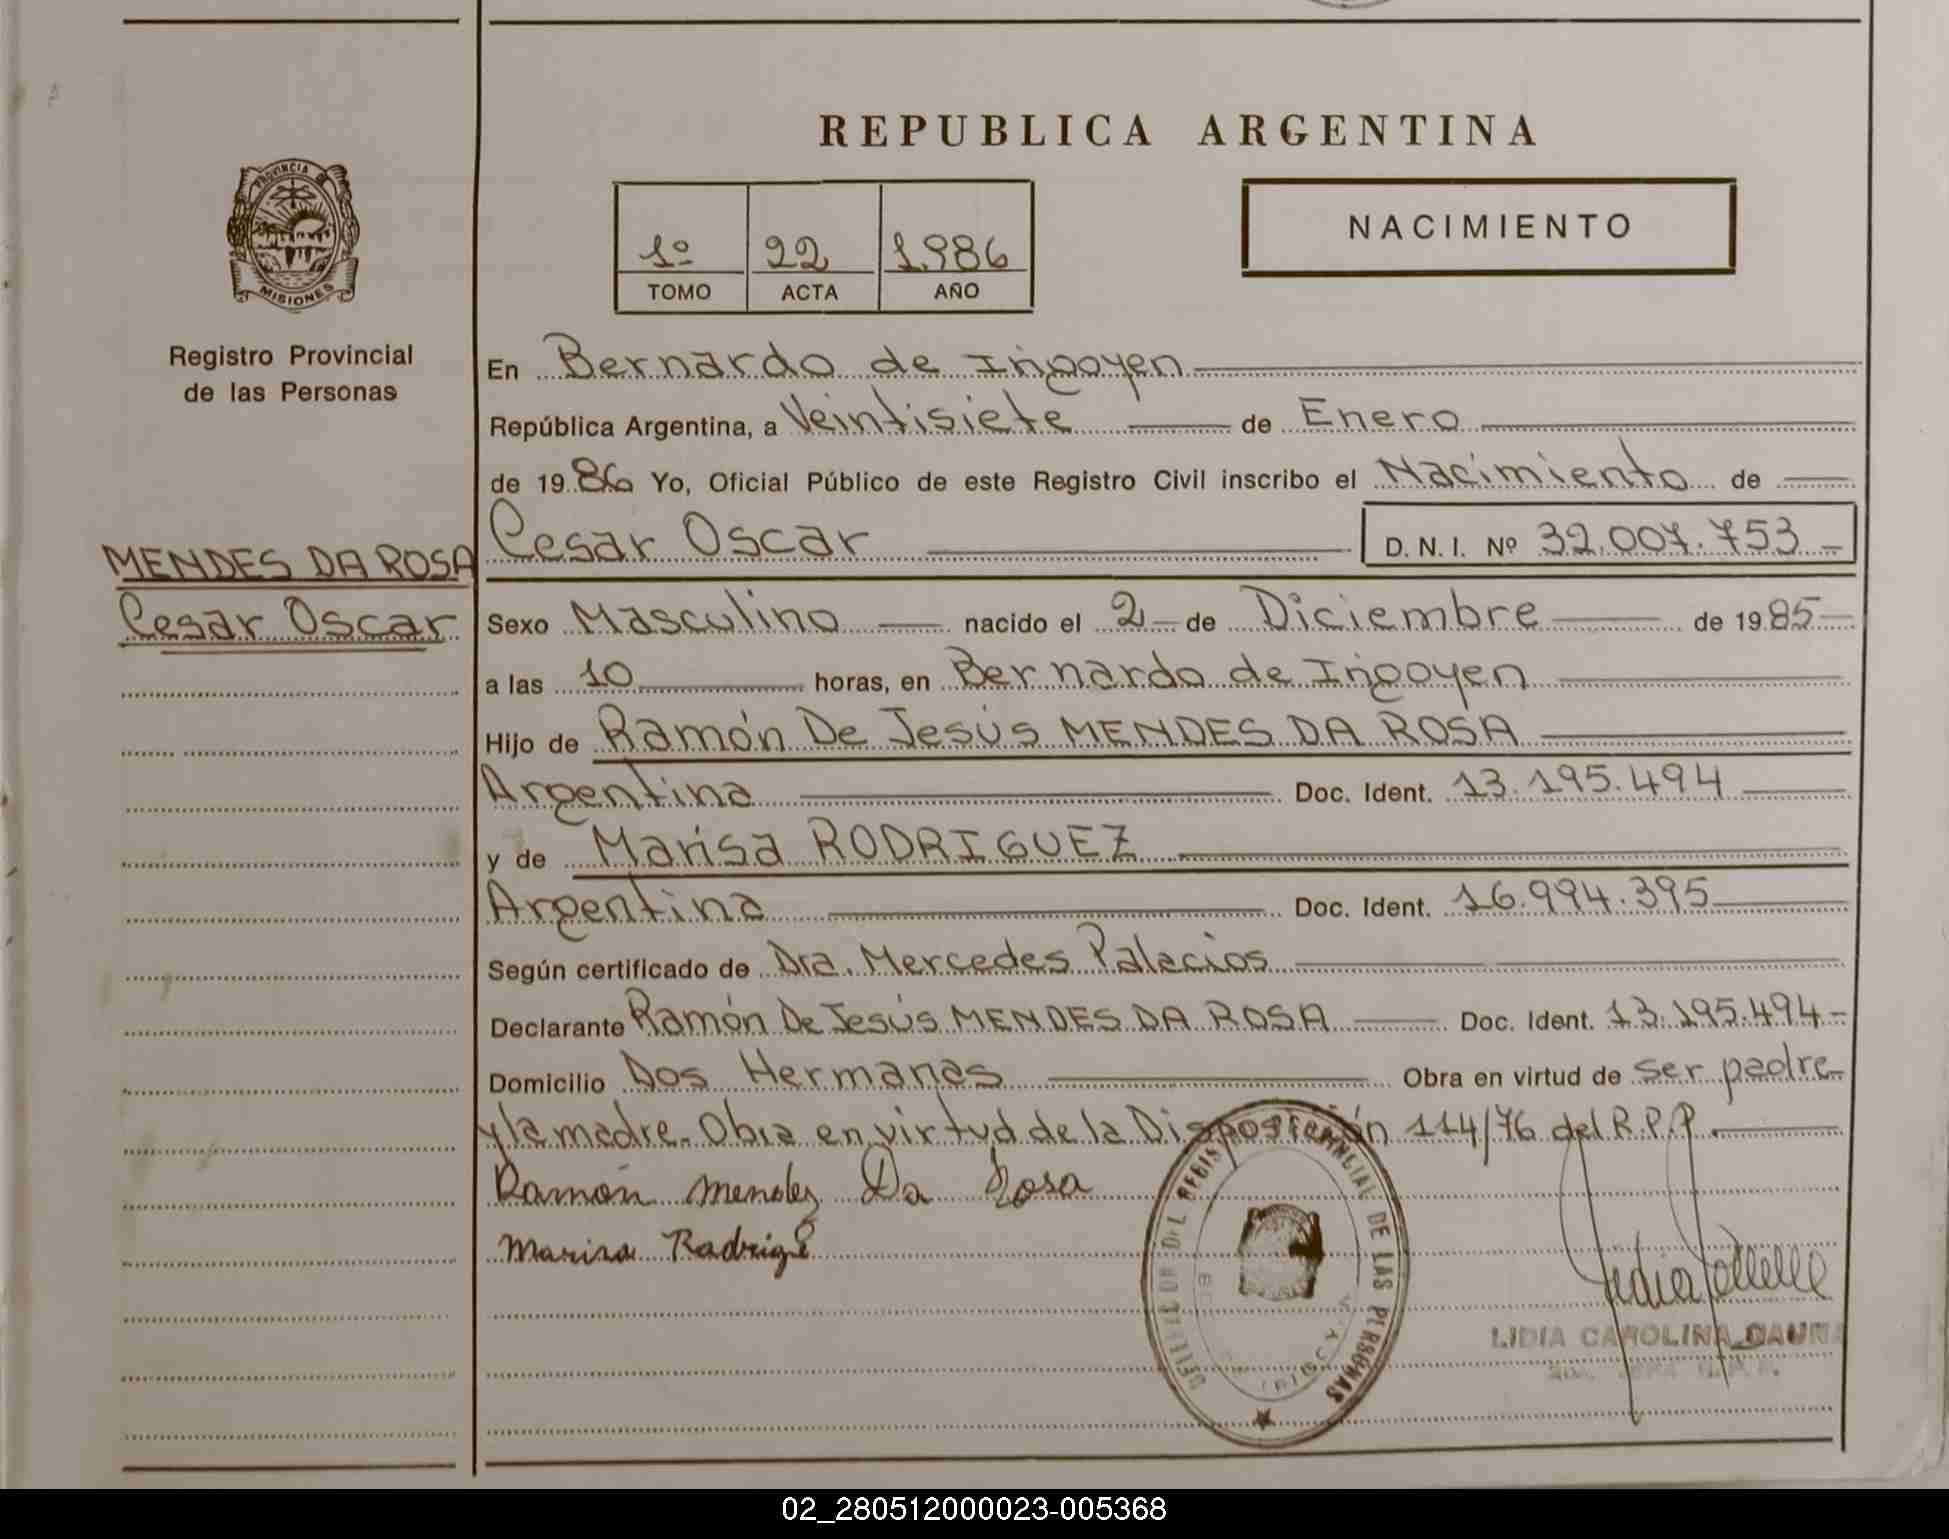 REPUBLICA ARGENTINA
PROVINCIA DE
MISIONES
Registro Provincial
de las Personas
1º 22 1.986
TOMO ACTA AÑO
NACIMIENTO
En Bernardo de Irigoyen
República Argentina, a Veintisiete de Enero
de 1986 Yo, Oficial Público de este Registro Civil inscribo el Nacimiento de
Cesar Oscar D. N. I. Nº 32.007.753
MENDES DA ROSA
Cesar Oscar
Sexo Masculino nacido el 2 de Diciembre de 1985
a las 10 horas, en Bernardo de Irigoyen
Hijo de Ramón De Jesús MENDES DA ROSA
Argentina Doc. Ident. 13.195.494
y de Marisa RODRIGUEZ
Argentina Doc. Ident. 16.994.395
Según certificado de Dra. Mercedes Palacios
Declarante Ramón De Jesús MENDES DA ROSA Doc. Ident. 13.195.494
Domicilio Dos Hermanas Obra en virtud de ser padre
y la madre. Obra en virtud de la Disposición 114/76 del R.P.P.
Ramón Mendez Da Rosa
Marisa Rodrigue
DE LAS PERSONAS
LIDIA CAROLINA
02_280512000023-005368